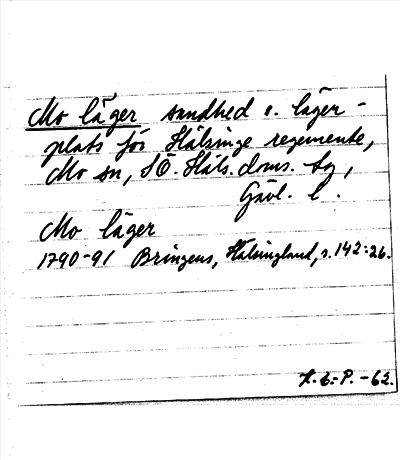 Mo läger sandhed o. läger-
plats för Hälsinge regemente,
Mo sn, SÖ. Häls. doms. tg,
Gävl. l.
Mo läger
1790-91 Bringéus, Hälsingland, s. 142:26.
-62.